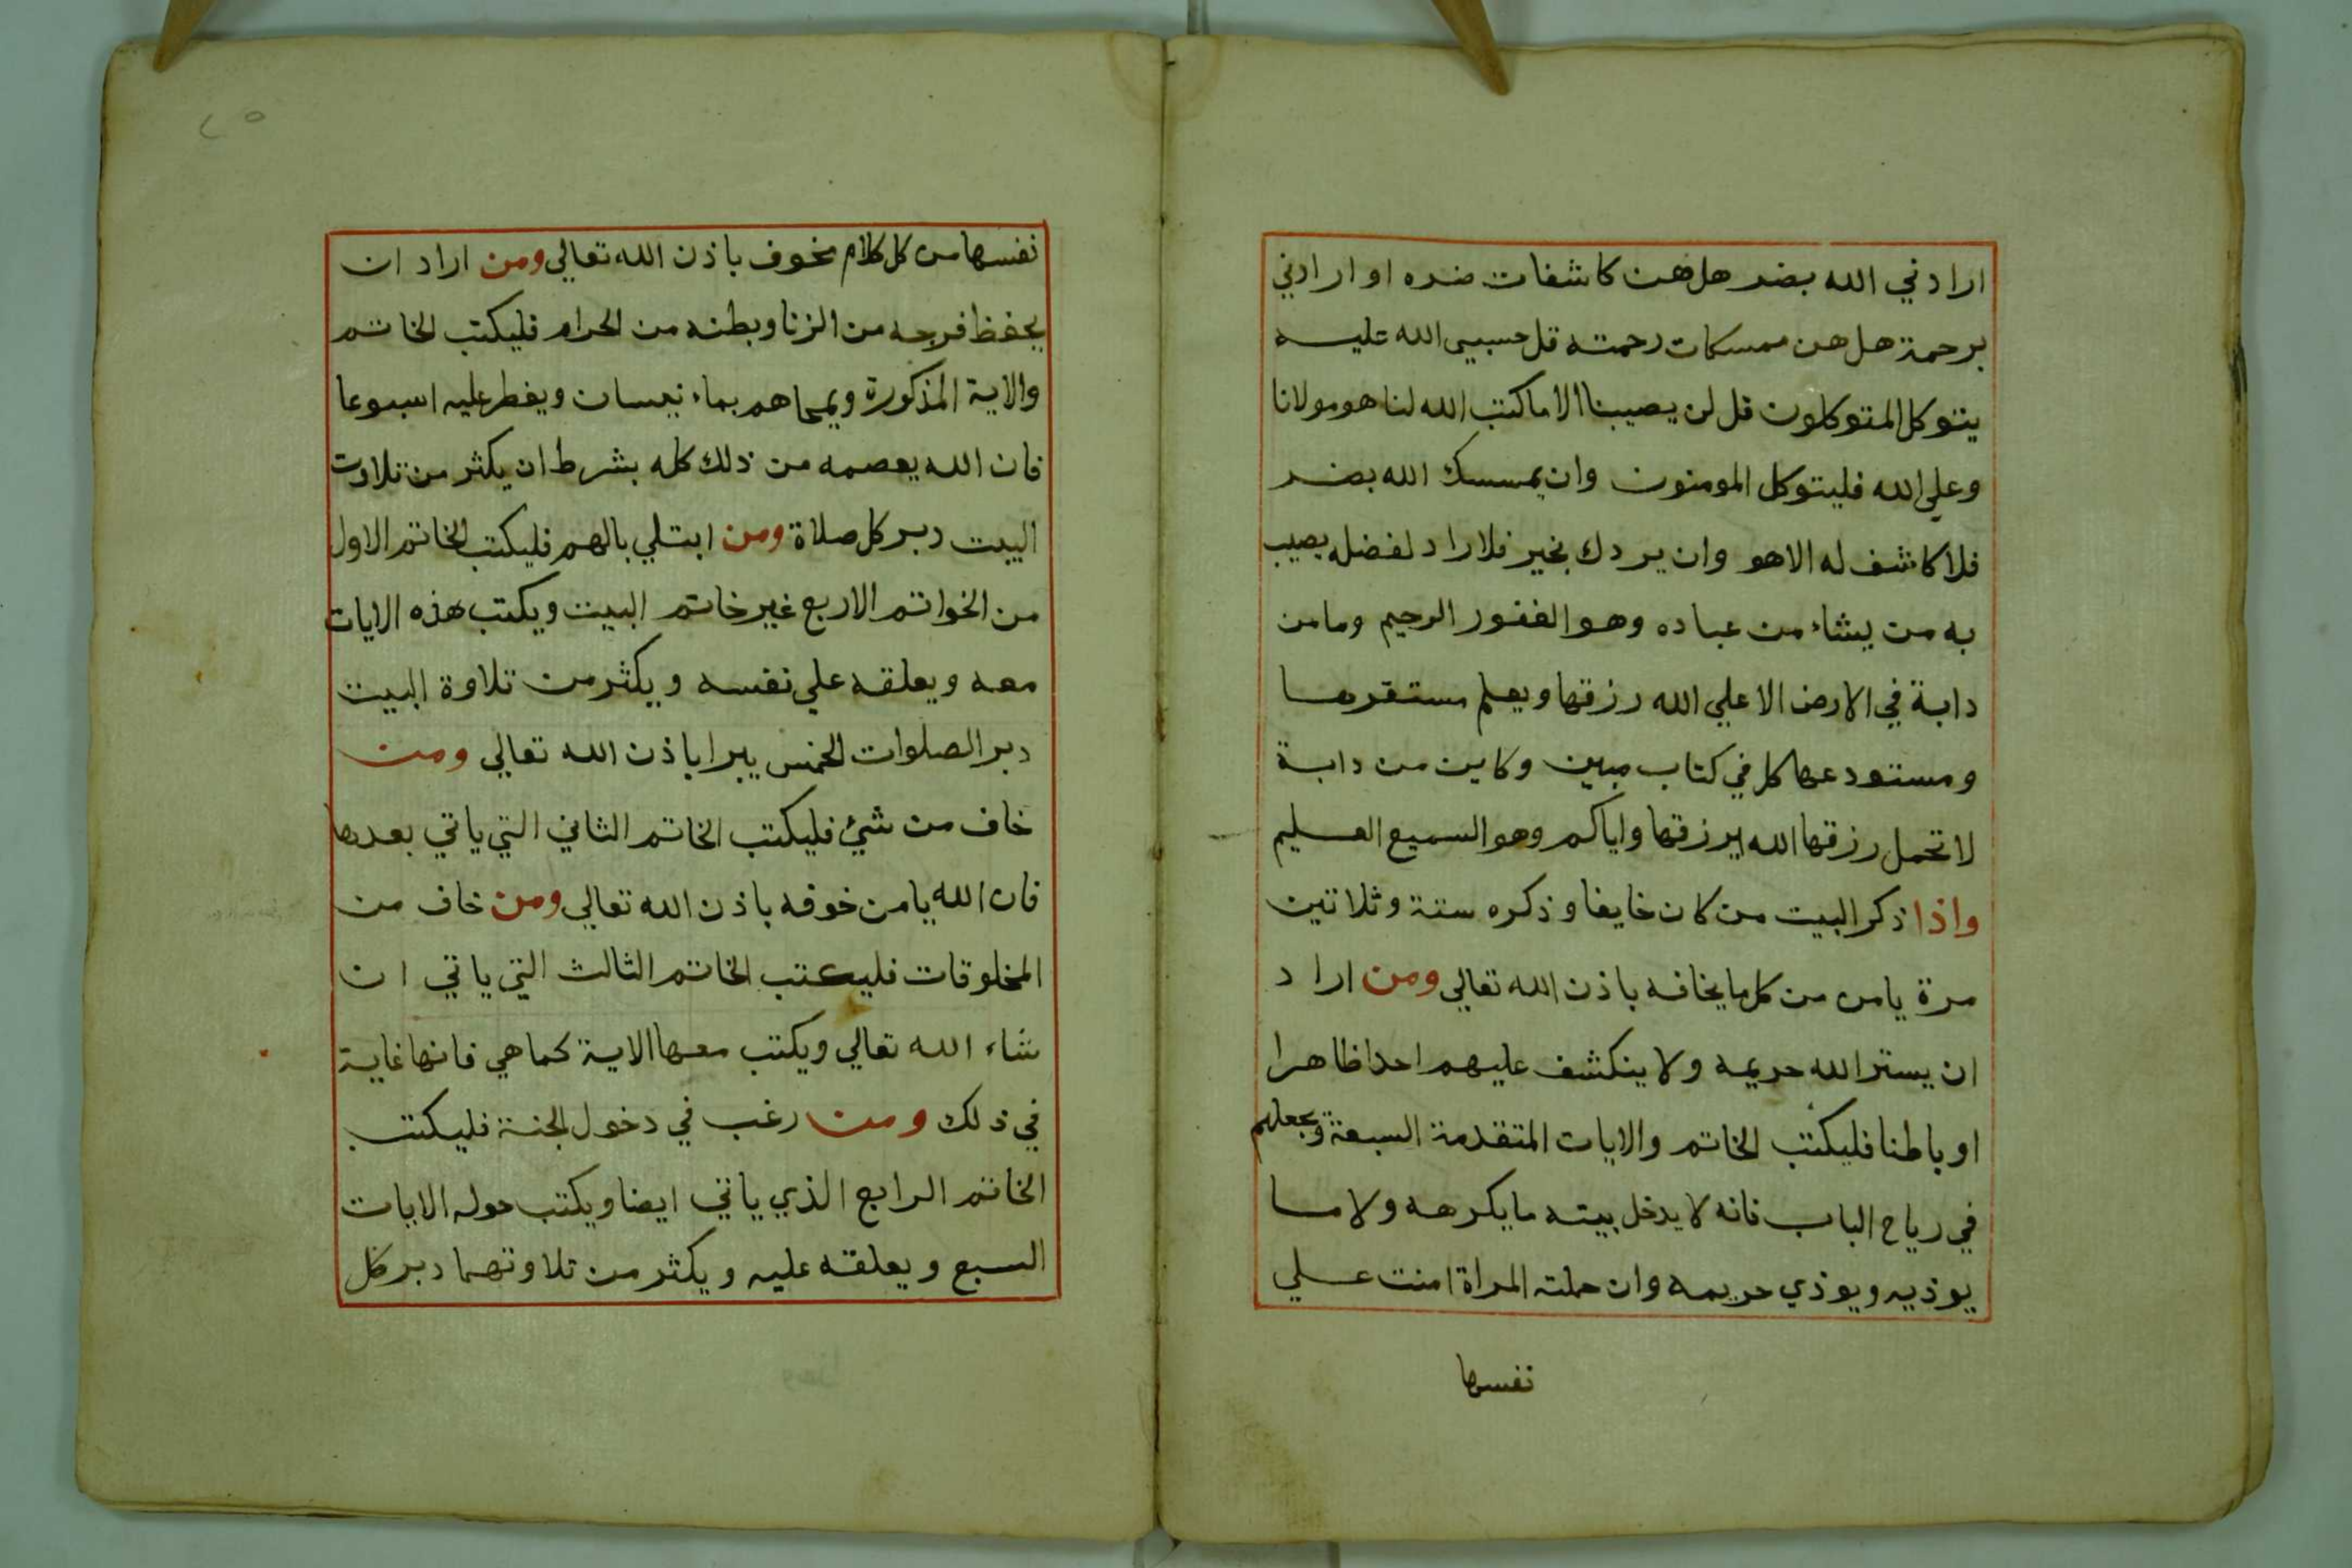 ارادني الله بضر هل هن كاشفات ضره او ارادني
برحمة هل هن ممسكات رحمته قل حسبي الله عليه
يتوكل المتوكلون قل لن يصيبنا الا ما كتب الله لنا هو مولانا
وعلي الله فليتوكل المومنون وان يمسسك الله بضر
فلا كاشف له الا هو وان يردك بخير فلا راد لفضله يصيب
به من يشاء من عباده وهو الغفور الرحيم وما من
دابة في الارض الا علي الله رزقها ويعلم مستقرها
ومستودعها كل في كتاب مبين وكاين من دابة
لا تحمل رزقها الله يرزقها واياكم وهو السميع العليم
واذا ذكر البيت من كان خايفا وذكره ستة وثلاثين
مرة يامن من كل ما يخافه باذن الله تعالي ومن اراد
ان يستر الله حريمه ولا ينكشف عليهم احدا ظاهرا
او باطنا فليكتب الخاتم والايات المتقدمة السبعة ويجعلهم
في رياح الباب فانه لا يدخل بيته ما يكرهه ولا ما
يوذيه ويوذي حريمه وان حملته المراة امنت علي
نفسها
٢٥
نفسها من كل كلام مخوف باذن الله تعالي ومن اراد ان
يحفظ فرجه من الزنا وبطنه من الحرام فليكتب الخاتم
والاية المذكورة ويمحاهم بماء نيسان ويفطر عليه اسبوعا
فان الله يعصمه من ذلك كله بشرط ان يكثر من تلاوت
البيت دبر كل صلاة ومن ابتلي بالهم فليكتب الخاتم الاول
من الخواتم الاربع غير خاتم البيت ويكتب هذه الايات
معه ويعلقه علي نفسه ويكثر من تلاوة البيت
دبر الصلوات الخمس يبرا باذن الله تعالي ومن
خاف من شئ فليكتب الخاتم الثاني التي ياتي بعدها
فان الله يامن خوفه باذن الله تعالي ومن خاف من
المخلوقات فليكتب الخاتم الثالث التي ياتي ان
شاء الله تعالي ويكتب معها الاية كما هي فانها غاية
في ذلك ومن رغب في دخول الجنة فليكتب
الخاتم الرابع الذي ياتي ايضا ويكتب حوله الايات
السبع ويعلقه عليه ويكثر من تلاوتهما دبر كل